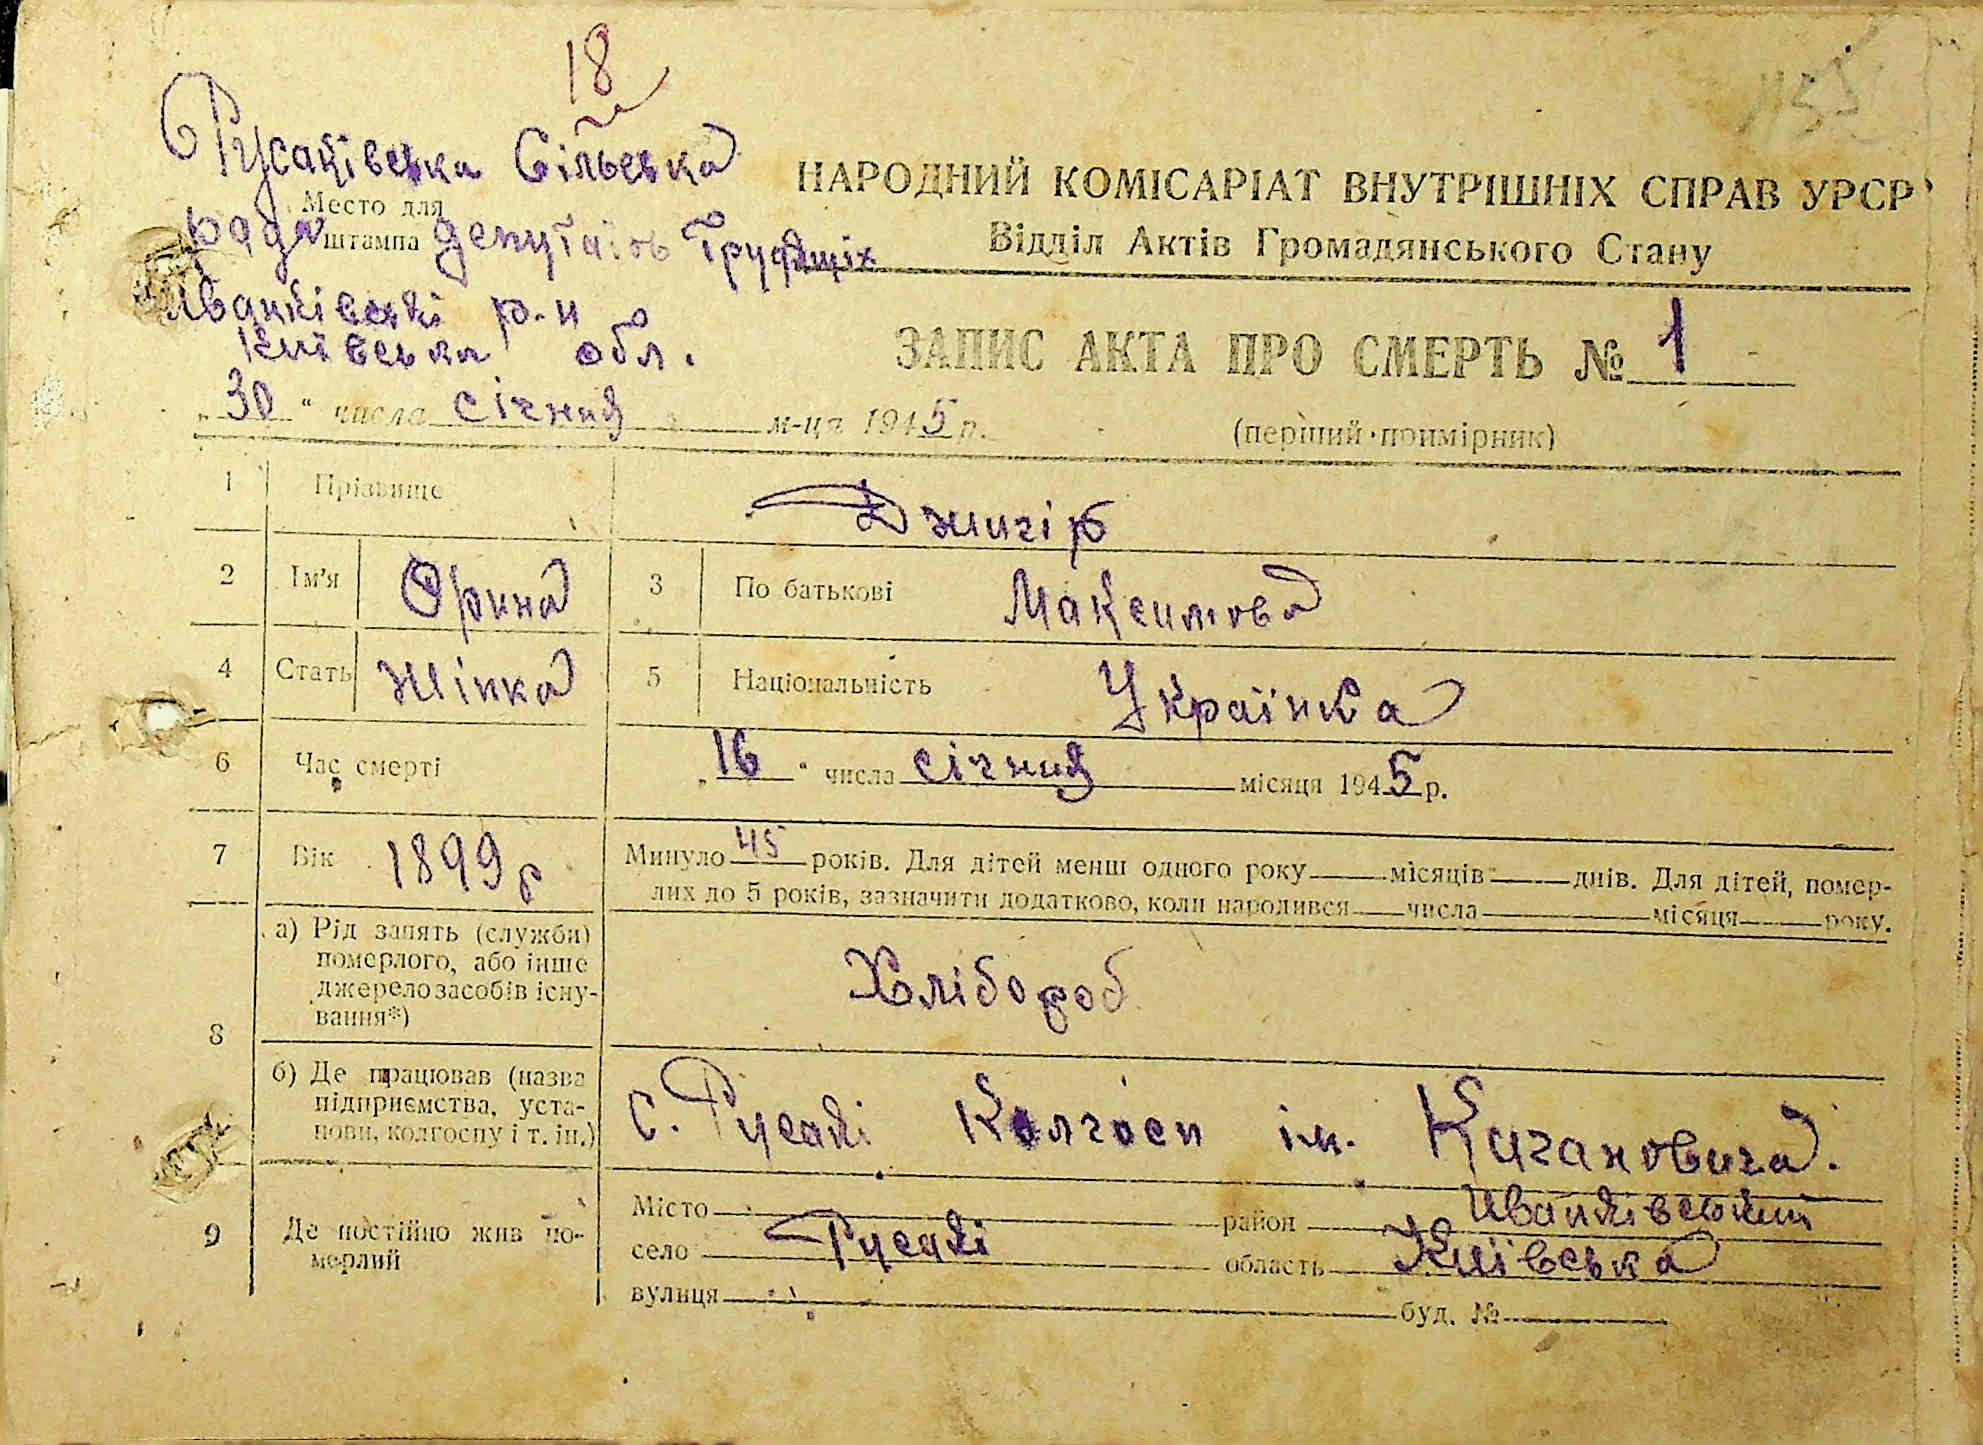 18
Русаківська Сільська
Место для
штампа
Рада депутатів Трудящіх
Іванківські р-н
Київська обл.
НАРОДНИЙ КОМІСАРІАТ ВНУТРІШНІХ СПРАВ УРСР
Відділ Актів Громадянського Стану
ЗАПИС АКТА ПРО СМЕРТЬ № 1
„30“ числа січния м-ця 1945 р.
(перший примірник)
1 Прізвище Джигір
2 Ім'я Орина 3 По батькові Максимова
4 Стать Жінка 5 Національність Українка
6 Час смерті „16“ числа січния місяця 1945 р.
7 Вік 1899 р Минуло 45 років. Для дітей менш одного року місяців днів. Для дітей, помер-
лих до 5 років, зазначити додатково, коли народився числа місяця року.
8 а) Рід занять (служби)
померлого, або інше
джерело засобів існу-
вання*)
Хлібороб
б) Де працював (назва
підприємства, уста-
нови, колгоспу і т. ін.)
с. Русакі Колгосп ім. Кагановича.
9 Де постійно жив по-
мерлий
Місто район Иванківський
село Русакі область Київська
вулиця буд. №